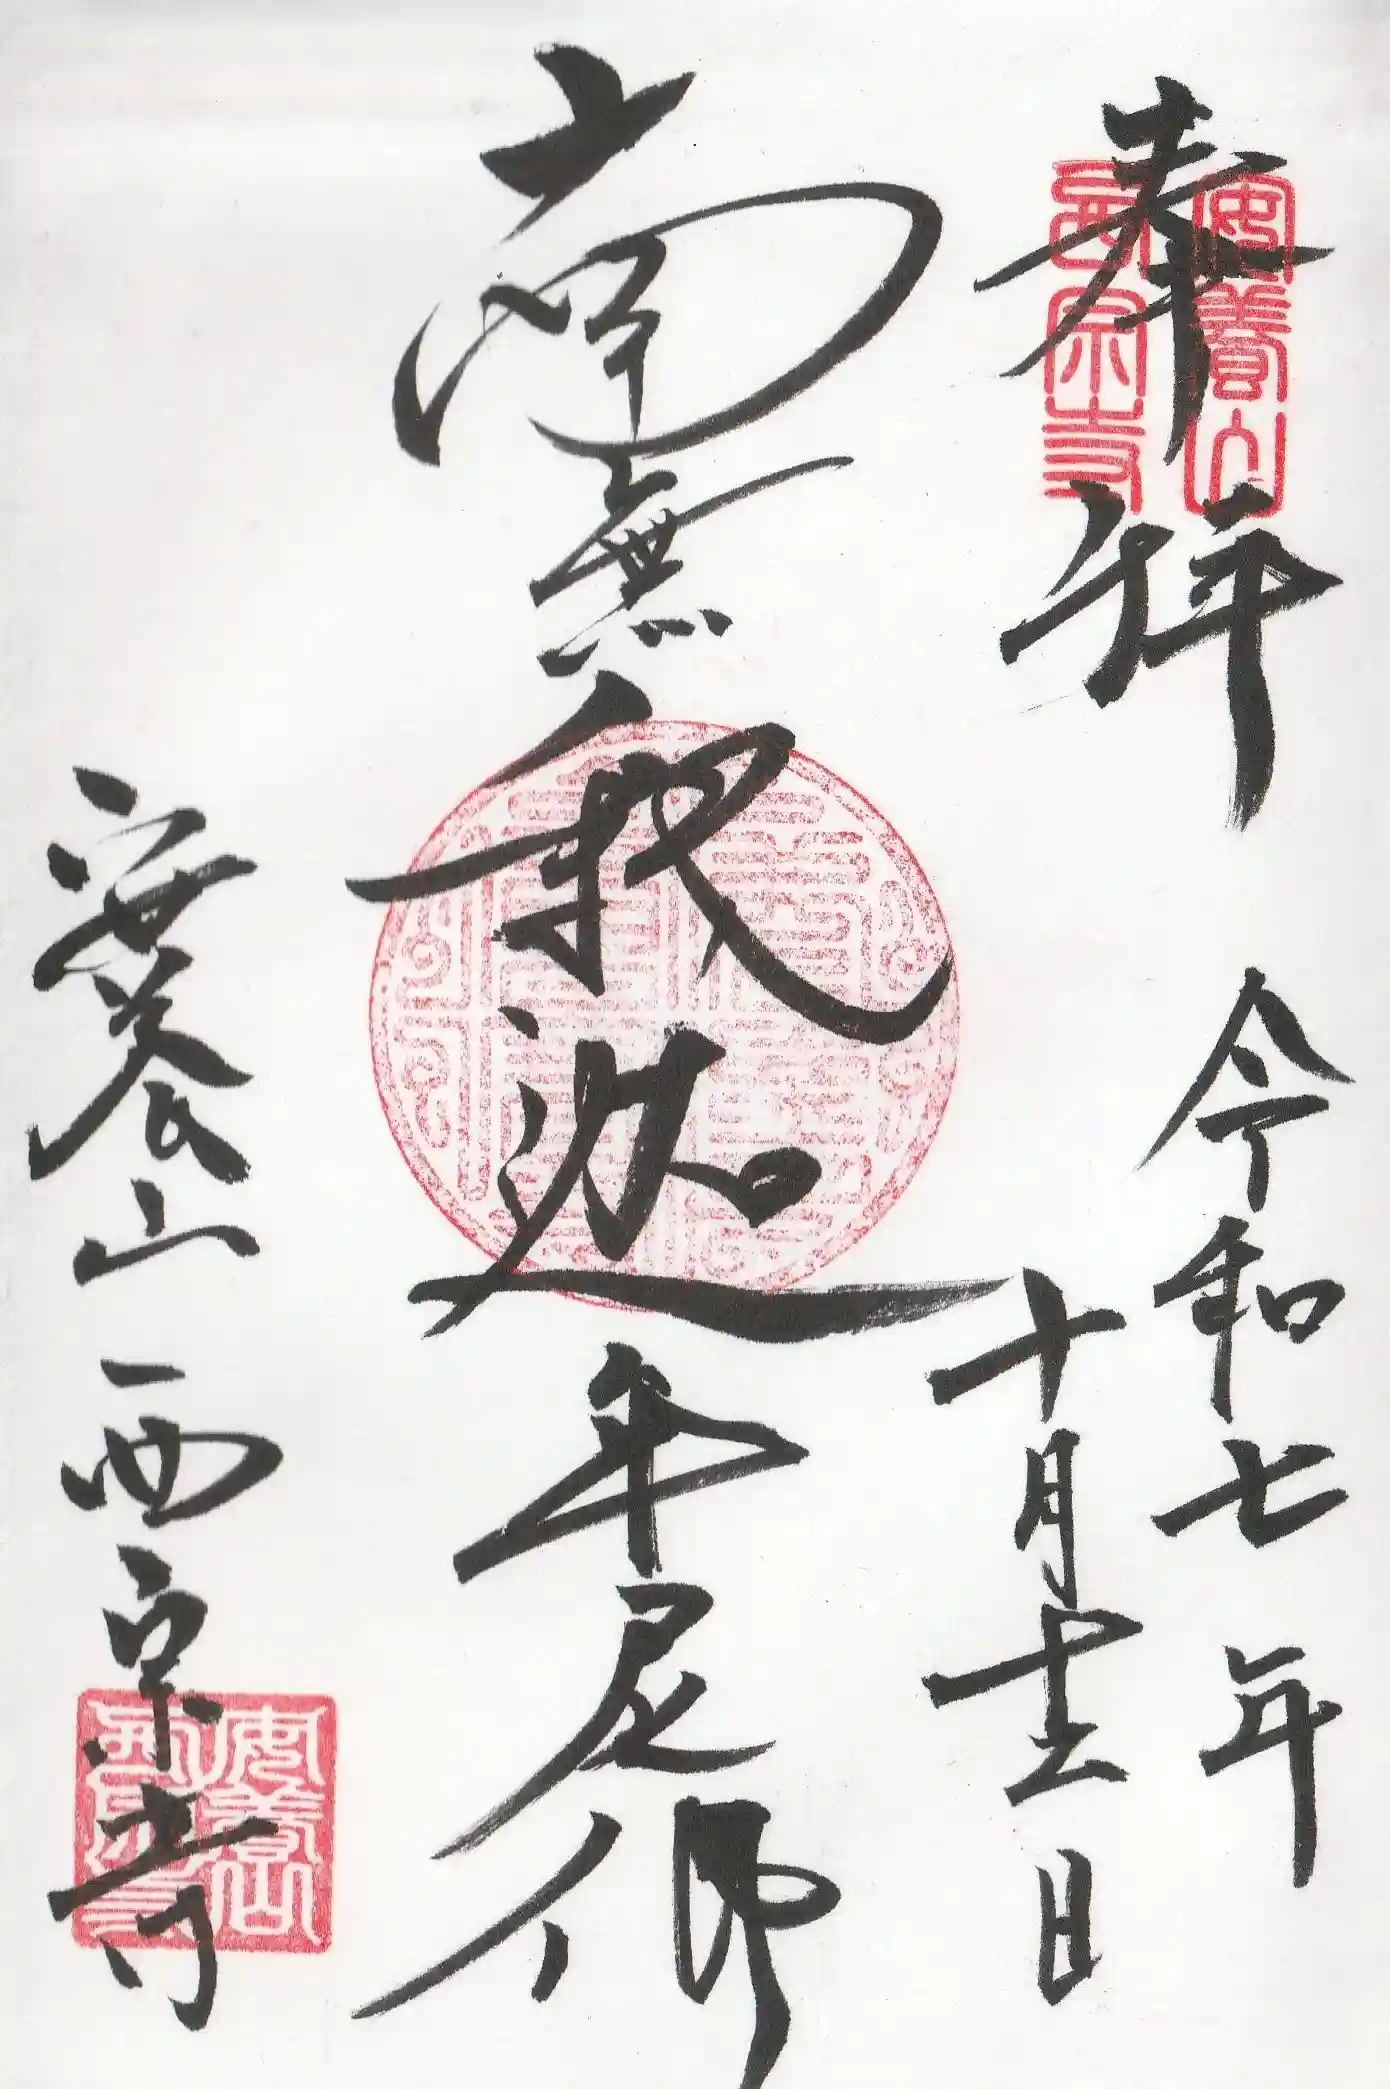 奉拝
令和七年
十月十二日
南無釈迦牟尼佛
安養山 西宗寺
安養山
西宗寺
安養山
西宗寺